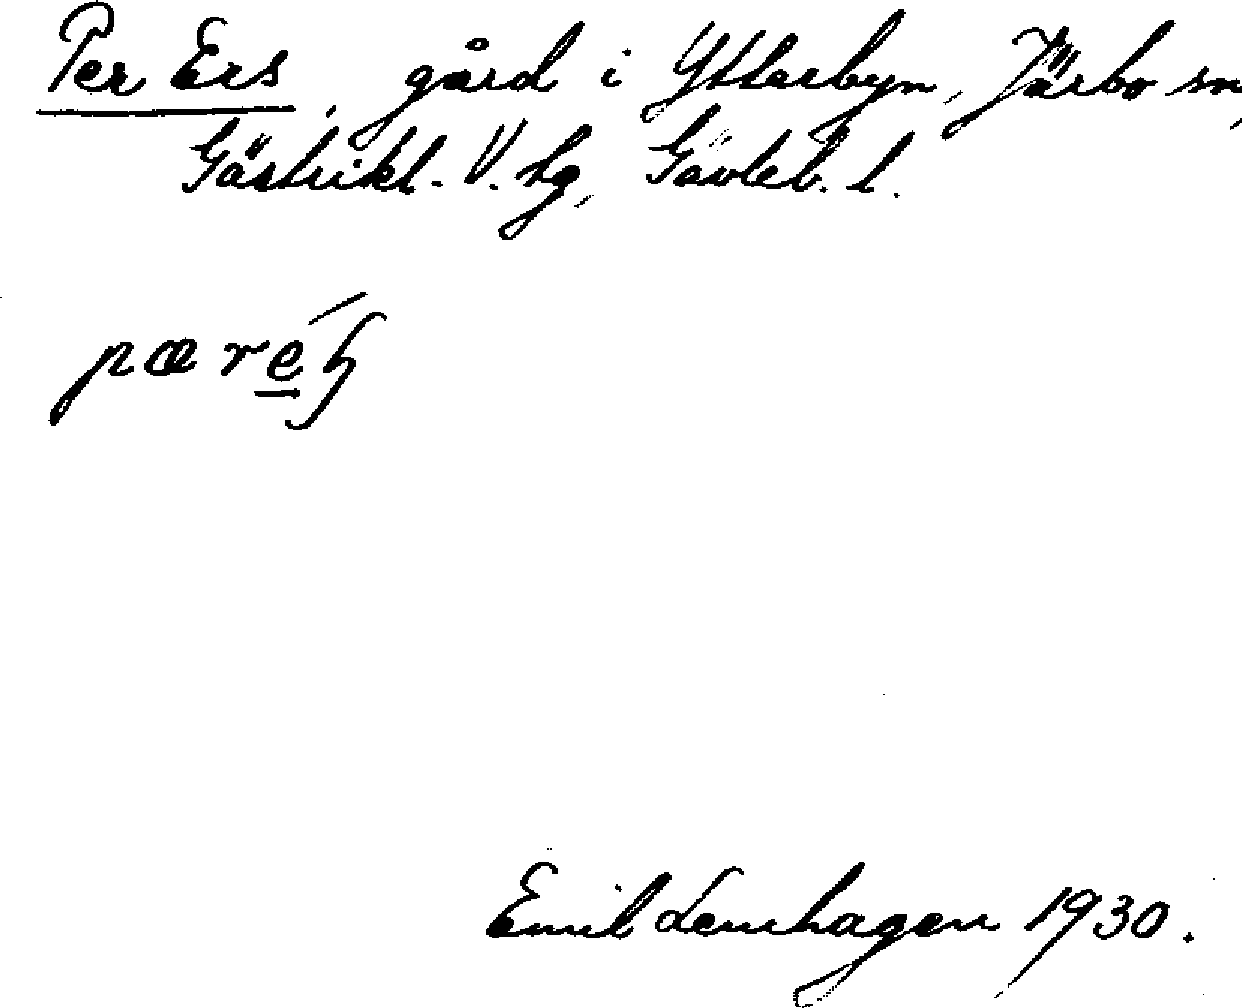 Per Ers, gård i Ytterbyn, Järbo sn,
Gästrikl. V. tg, Gävleb. l.
pæ
Emil Lennhagen 1930.